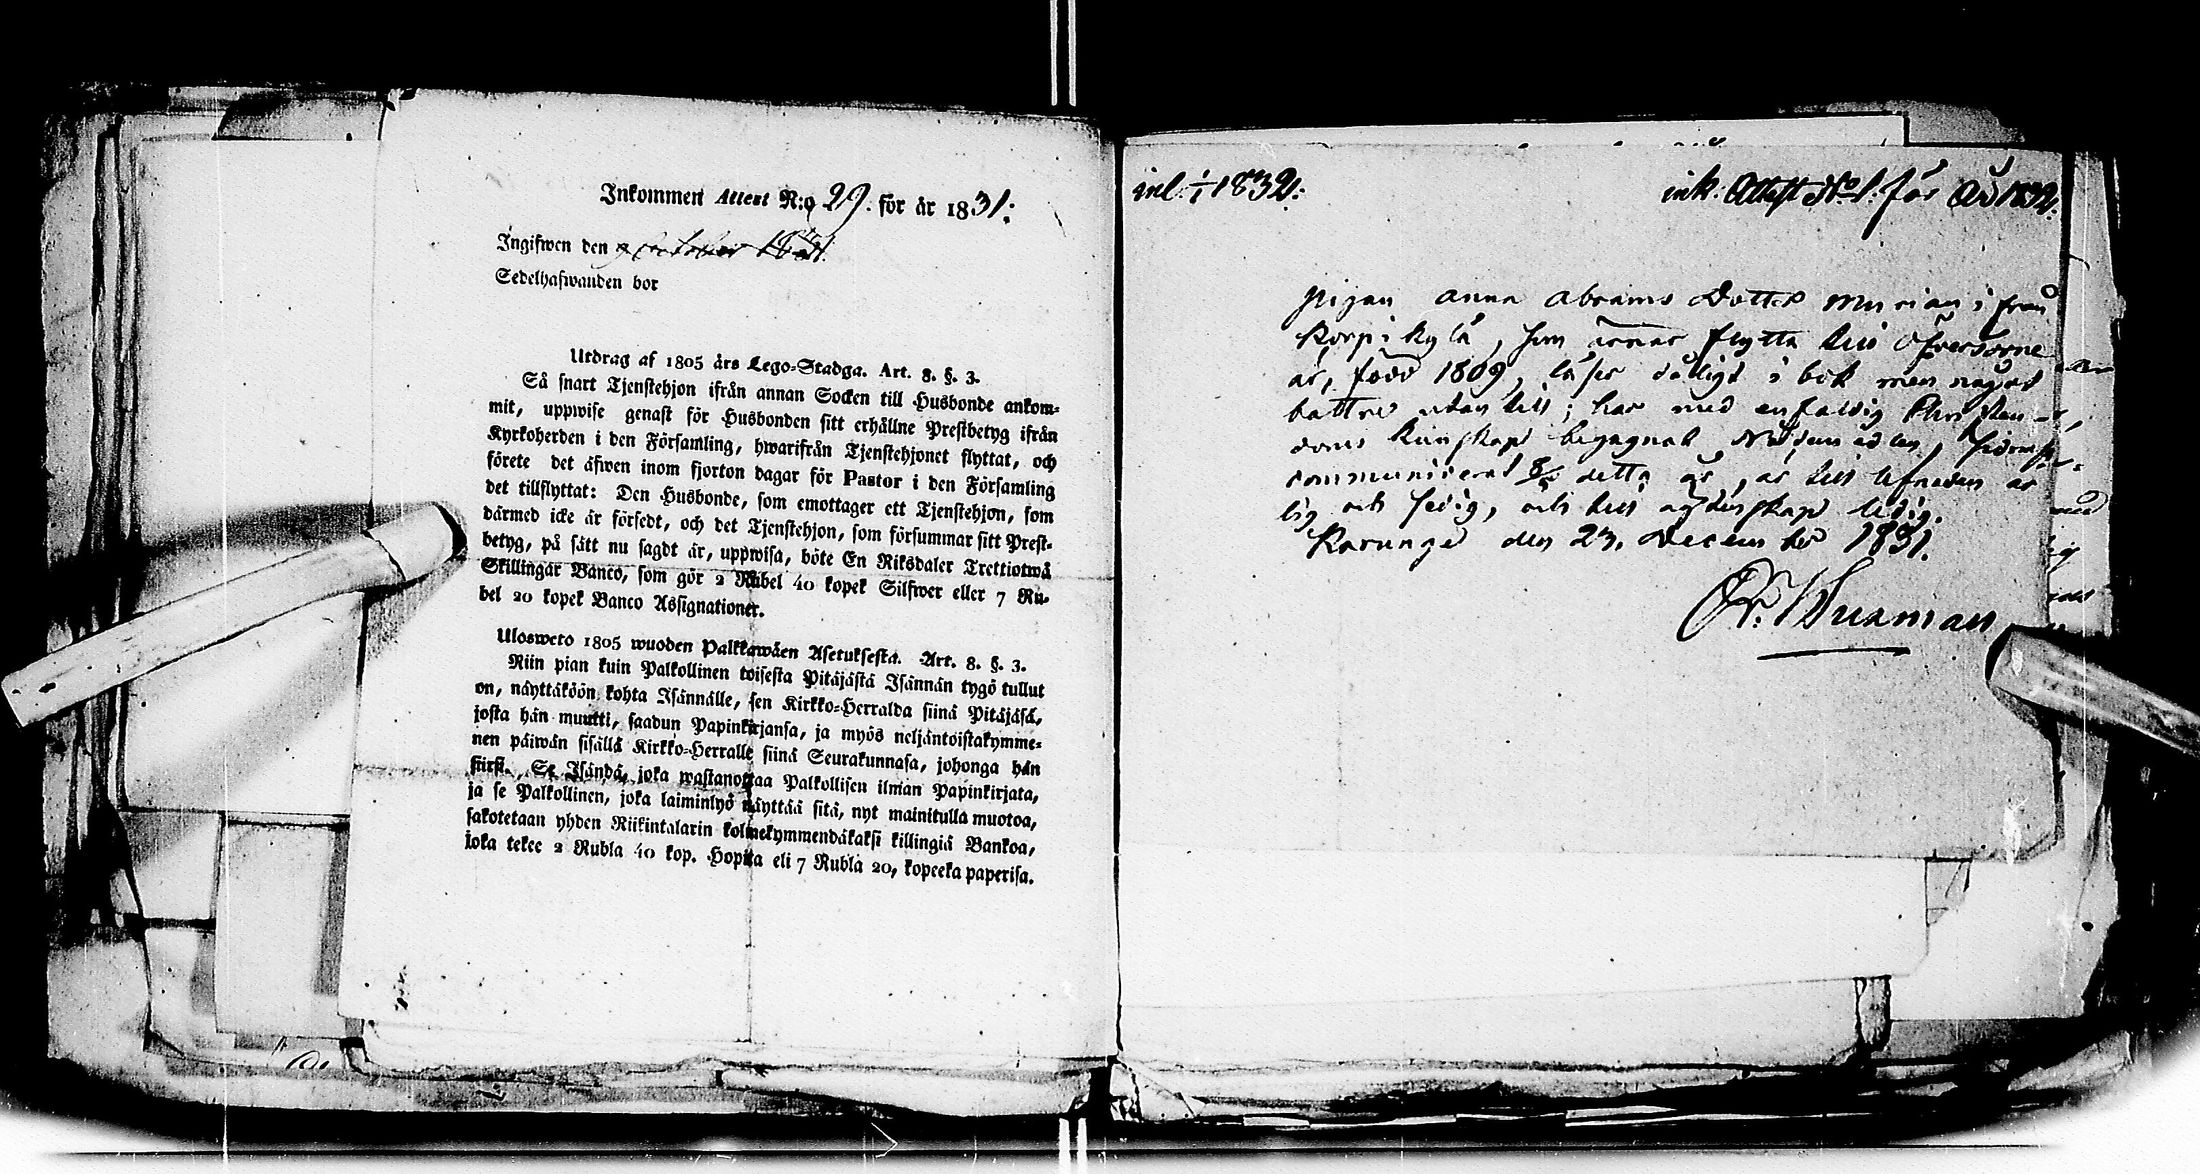 Inkommen Attest N:o 29. för år 1831:
Ingifwen den 9 october 1831.
Sedelhafwanden bor
Utdrag af 1805 års Lego-Stadga. Art. 8. §. 3.
Så snart Tjenstehjon ifrån annan Socken till Husbonde ankom-
mit, uppwise genast för Husbonden sitt erhållne Prestbetyg ifrån
Kyrkoherden i den Församling, hwarifrån Tjenstehjonet flyttat, och
förete det äfwen inom fjorton dagar för Pastor i den Församling
det tillflyttat: Den Husbonde, som emottager ett Tjenstehjon, som
därmed icke är försedt, och det Tjenstehjon, som försummar sitt Prest-
betyg, på sätt nu sagdt är, uppwisa, böte En Riksdaler Trettiotwå
Skillingar Banco, som gör 2 Rubel 40 kopek Silfwer eller 7 Ru-
bel 20 kopek Banco Assignationer.
Ulosweto 1805 wuoden Palkkawäen Asetuksesta. Art. 8. §. 3.
Niin pian kuin Palkollinen toisesta Pitäjästä Isännän tygö tullut
on, näyttäköön kohta Isännälle, sen Kirkko-Herralda siinä Pitäjäsä,
josta hän muutti, saadun Papinkirjansa, ja myös neljäntoistakymme-
nen päiwän sisällä Kirkko-Herralle siinä Seurakunnasa, johonga hän
siirsi. Se Isändä, joka wastanottaa Palkollisen ilman Papinkirjata,
ja se Palkollinen, joka laiminlyö näyttää sitä, nyt mainitulla muotoa,
sakotetaan yhden Riikintalarin kolmekymmendäkaksi killingiä Bankoa,
joka tekee 2 Rubla 40 kop. Hopita eli 7 Rubla 20, kopeeka paperisa.
inl. 1/1 1832:
ink. Attest No 1. för År 1832:
Pigan Anna Abrams Dotter ifrån
Korpikylä, som ärnar flytta till Öfvertorne
å, född 1809, läser dåligt i bok men något
bättre utan till; har med enfaldig Christen-
doms kunskap begagnat Nattvarden,
communicerat detta år, är till lefnaden är
lig och sedig, och till ägtenskap ledig.
Karungi den 23. December 1831.